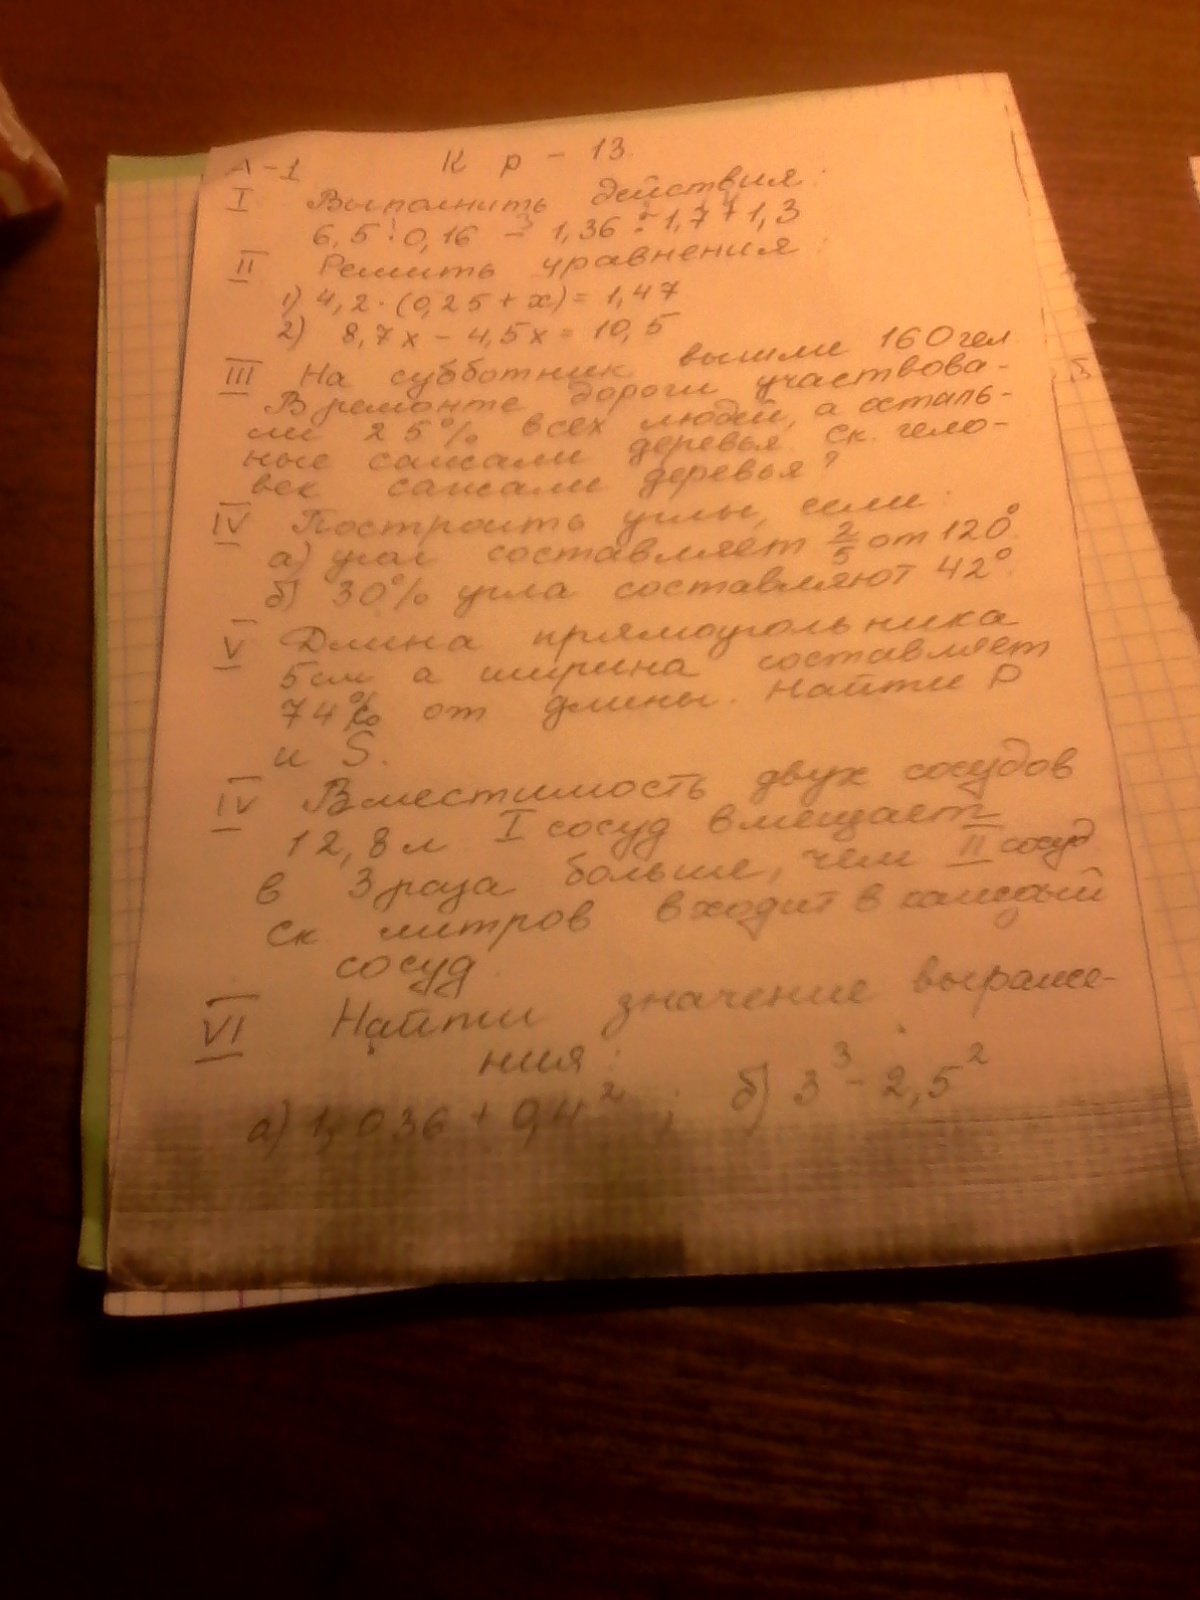 А-1 К р - 13.
I Выполнить действия:
6,5 : 0,16 - 1,36 : 1,7 + 1,3
II Решить уравнения:
1) 4,2 · (0,25 + x) = 1,47
2) 8,7x - 4,5x = 10,5
III На субботник вышли 160 чел
В ремонте дороги участвова-
ли 25% всех людей, а осталь-
ные сажали деревья. Ск. чело-
век сажали деревья?
IV Построить углы, если:
а) угол составляет 2/5 от 120°.
б) 30% угла составляют 42°.
V Длина прямоугольника
5см а ширина составляет
74% от длины. Найти P
и S.
IV Вместимость двух сосудов
12,8л I сосуд вмещает
в 3 раза больше, чем II сосуд
Ск литров входит в каждый
сосуд.
VI Найти значение выраже-
ния:
а) 1,036 + 0,4² ; б) 3³ - 2,5²